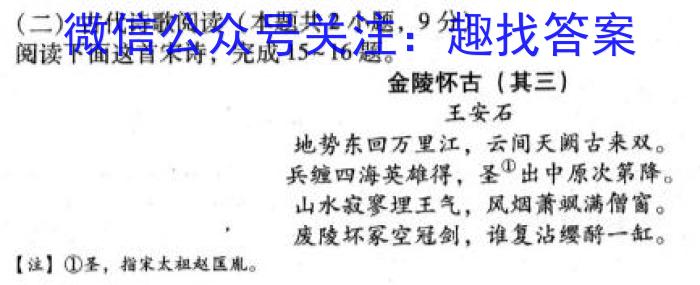 (二)古代诗歌阅读(本题共2小题,9分)
微信公众号关注:趣找答案
阅读下面这首宋诗,完成15~16题。
金陵怀古(其三)
王安石
地势东回万里江,云间天阙古来双。
兵缠四海英雄得,圣①出中原次第降。
山水寂寥埋王气,风烟萧飒满僧窗。
废陵坏冢空冠剑,谁复沾缨酹一缸。
【注】①圣,指宋太祖赵匡胤。